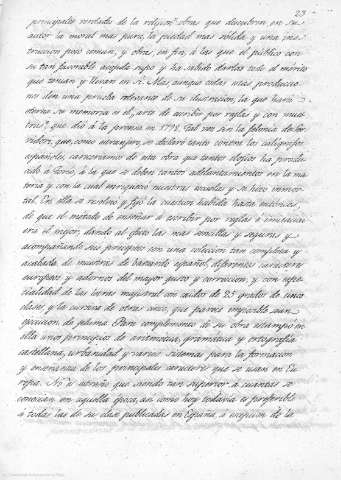 23
principales verdades de la religion: obras que descubren en su
autor la moral mas pura, la piedad mas solida y una ins-
truccion poco comun, y obras, en fin, á las que el público con
su tan favorable acogida supo y ha sabido darlas todo el mérito
que tenian y llevan en sí. Mas aunque estas unas produccio-
nes den una prueba relevante de su ilustracion, la que hará
eterna su memoria es el, arte de escribir por reglas y con mues-
tras, que dió á la prensa en 1798. Tal vez sin la
que, como estranjero, se declaró tanto contra los caligrafos
españoles, careceriamos de una obra que tantos elogios ha produ-
cido á Torio, á la que se deben tantos adelantamientos en la ma-
teria y con la cual enriqueció nuestras escuelas y se hizo inmor-
tal. En ella se resolvió y fijó la cuestion habida hasta entonces,
de que el metodo de enseñar á escribir por reglas é imitacion
era el mejor, dando al efecto las mas sencillas y seguras y
acompañando sus principios con una coleccion tan completa y
acabada de muestras de bastardo español, diferentes caracteres
europeos y adornos del mayor gusto y correccion, y con espe-
cialidad de las letras magistral con caidos de 25 grados de varias
clases y la cursiva de otras cinco, que parece imposible sean
ejecucion de pluma. Para complemento de su obra estampó en
ella unos principios de aritmetica, gramática y ortografia
castellana, urbanidad y varios sistemas para la formacion
y enseñanza de los principales caracteres que se usan en Eu-
ropa. No es estraño que siendo tan superior á cuantas se
conocian en aquella época, asi como hoy todavia es preferible
á todas las de su clase publicadas en España, á escepcion de la